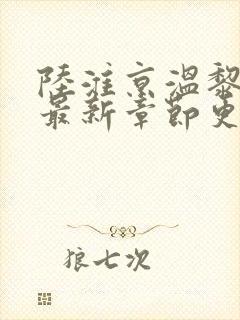 陸淮京溫黎
最新章節更
狼七次